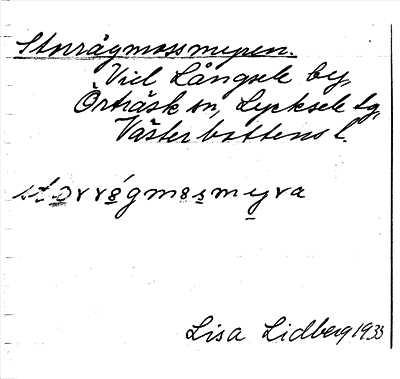 Storrågmossmyren.
Vid Långsele by,
Örträsk sn, Lycksele tg,
Västerbottens l.
stɔrrågmosmyra
Lisa Lidberg 1933